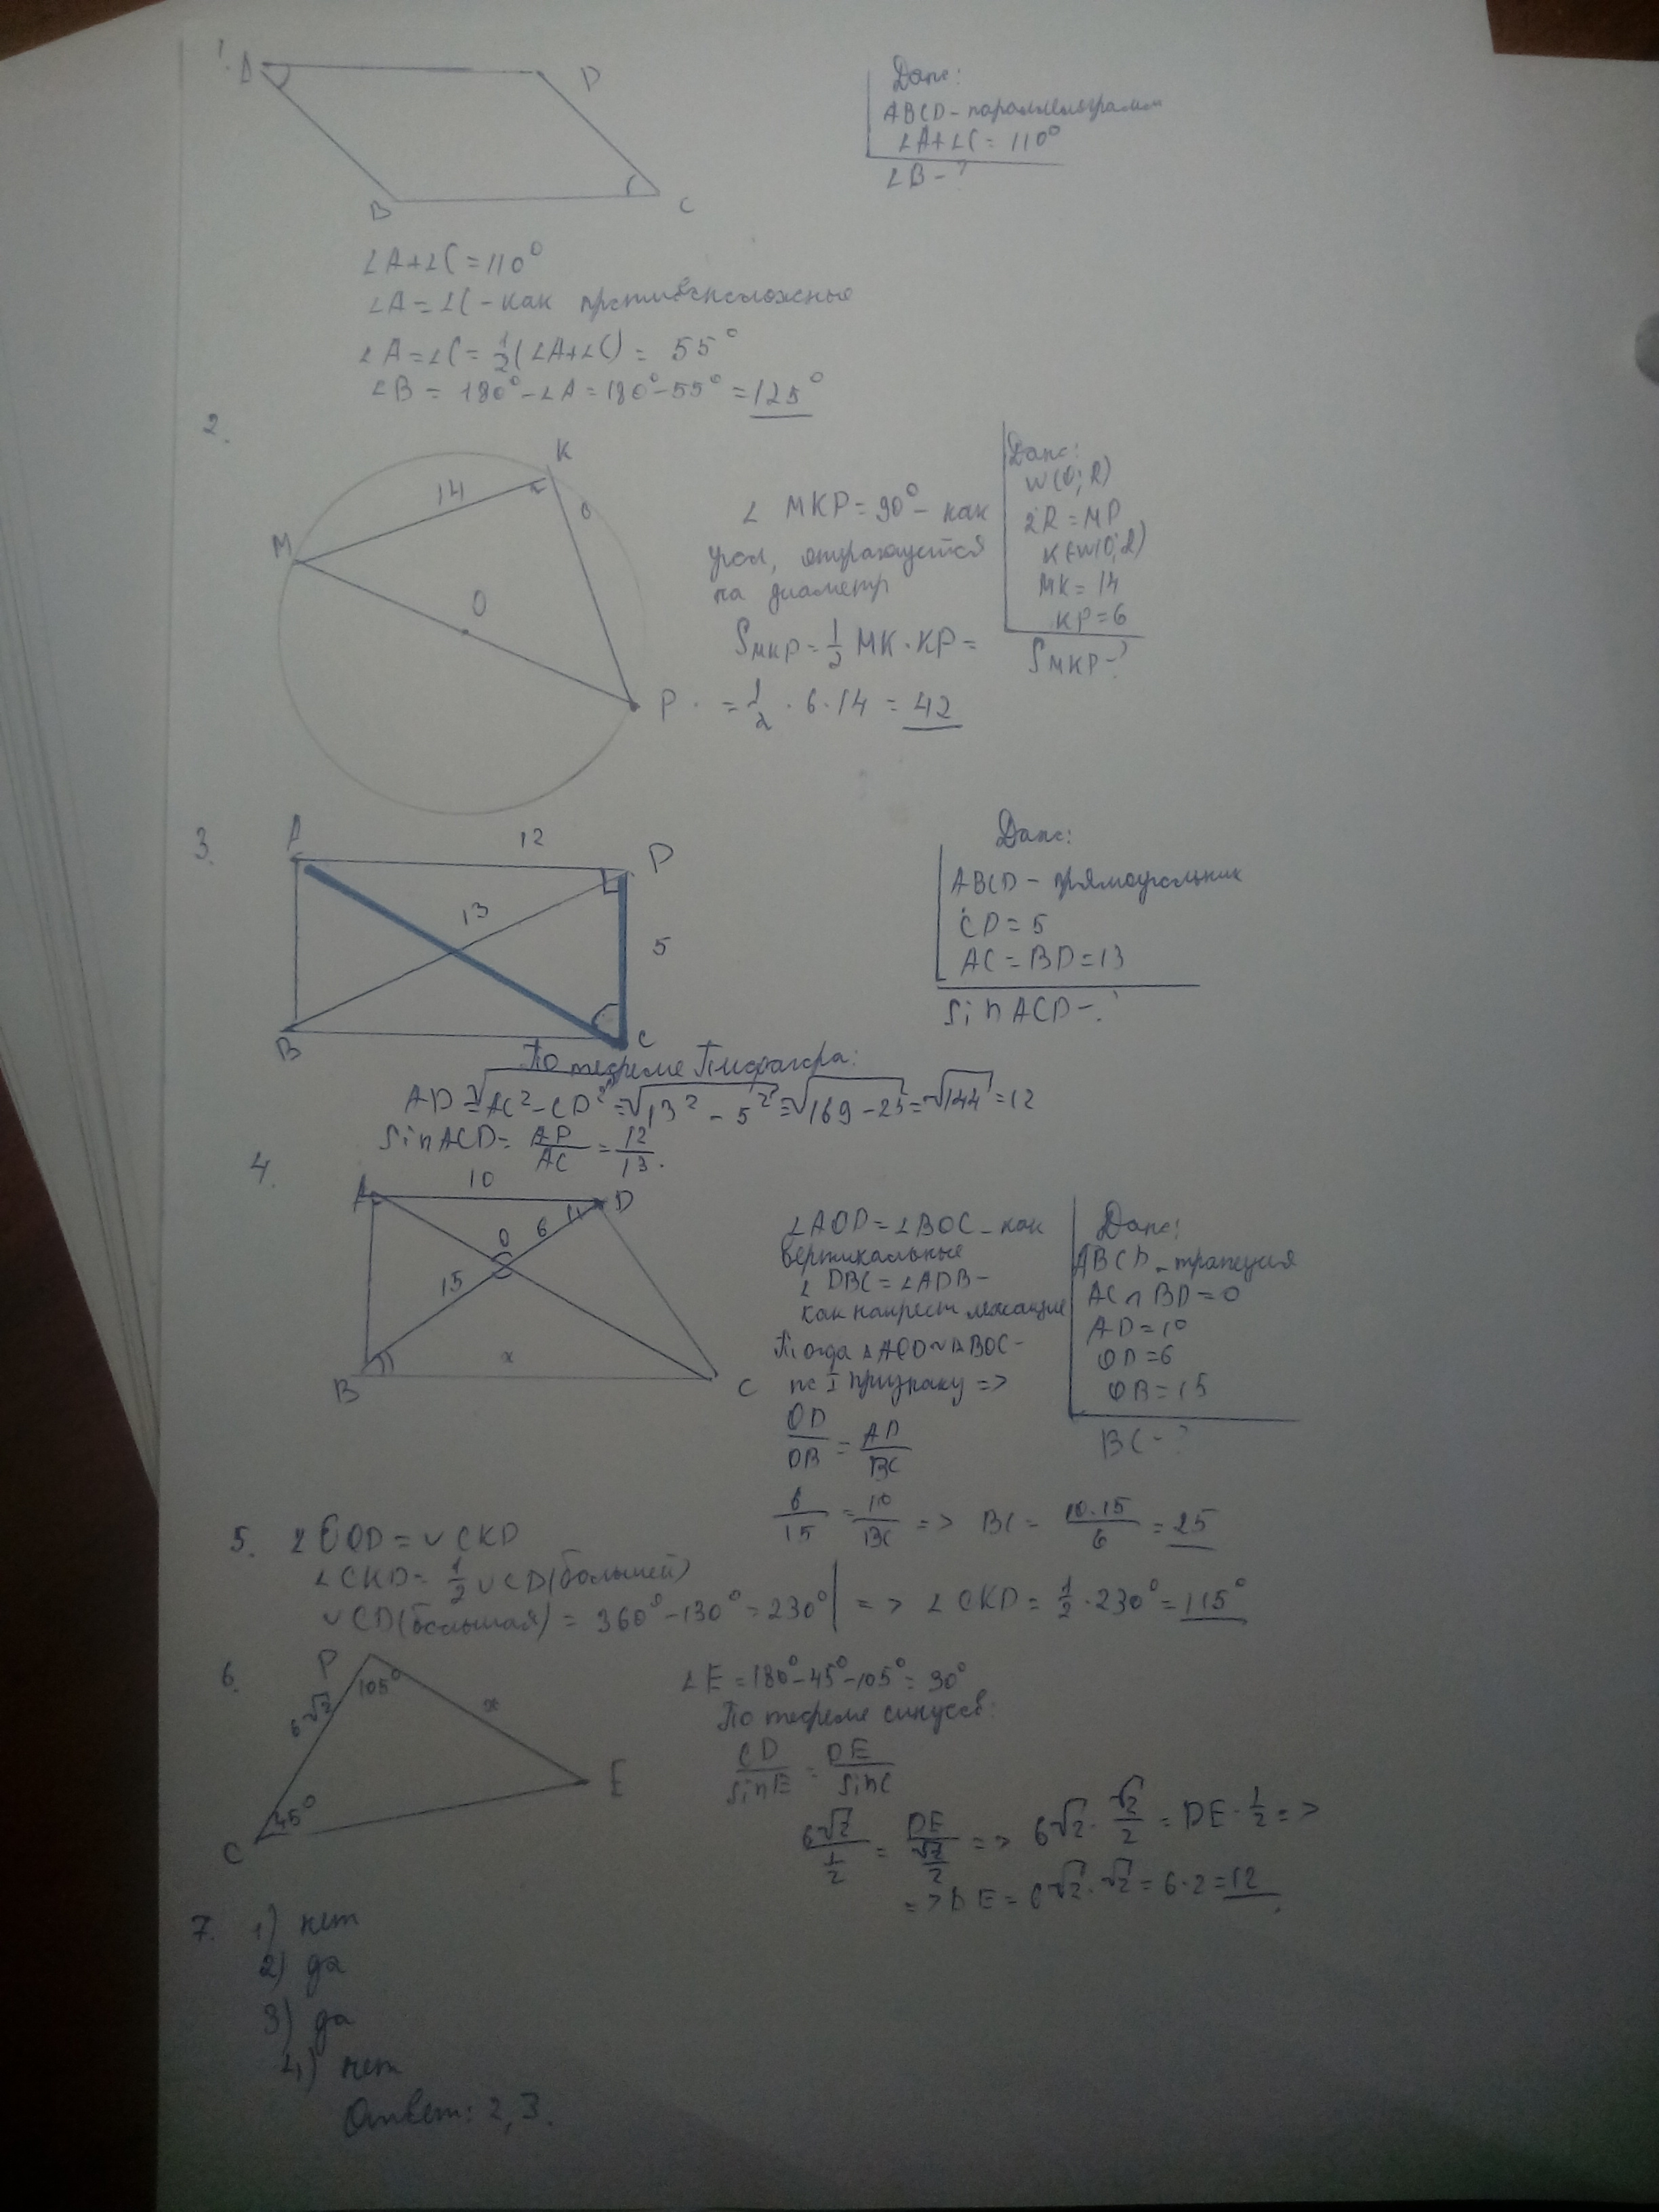 1.
A
D
B
C
Дано:
ABCD - параллелограмм
∠A+∠C = 110°
∠B - ?
∠A+∠C = 110°
∠A = ∠C - как противоположные
∠A = ∠C = 1/2 (∠A+∠C) = 55°
∠B = 180° - ∠A = 180° - 55° = 125°
2.
K
14
6
M
O
P
∠ MKP = 90° - как
угол, опирающийся
на диаметр
S MKP = 1/2 MK · KP =
= 1/2 · 6 · 14 = 42
Дано:
W(O; R)
2R = MP
K ∈ W(O; R)
MK = 14
KP = 6
S MKP - ?
3.
A
12
D
13
5
B
C
Дано:
ABCD - прямоугольник
CD = 5
AC = BD = 13
sin ACD - ?
По теореме Пифагора:
AD = √AC² - CD² = √13² - 5² = √169 - 25 = √144 = 12
sin ACD = AD/AC = 12/13.
4.
A
10
D
O
6
15
B
x
C
∠AOD = ∠BOC - как
вертикальные
∠ DBC = ∠ADB -
как накрест лежащие
Тогда ∆AOD ~ ∆BOC -
по I признаку =>
OD/OB = AD/BC
6/15 = 10/BC => BC = 10·15/6 = 25
Дано:
ABCD - трапеция
AC ∩ BD = O
AD = 10
OD = 6
OB = 15
BC - ?
5. ∠COD = ◡CKD
∠CKD = 1/2 ◡CD (большей)
◡CD (большая) = 360° - 130° = 230° | => ∠CKD = 1/2 · 230° = 115°
6.
D
105°
6√2
x
45°
C
E
∠E = 180° - 45° - 105° = 30°
По теореме синусов:
CD/sinE = DE/sinC
6√2 / 1/2 = DE / √2/2 => 6√2 · √2/2 = DE · 1/2 =>
=> DE = 6√2 · √2 = 6·2 = 12.
7. 1) нет
2) да
3) да
4) нет
Ответ: 2, 3.